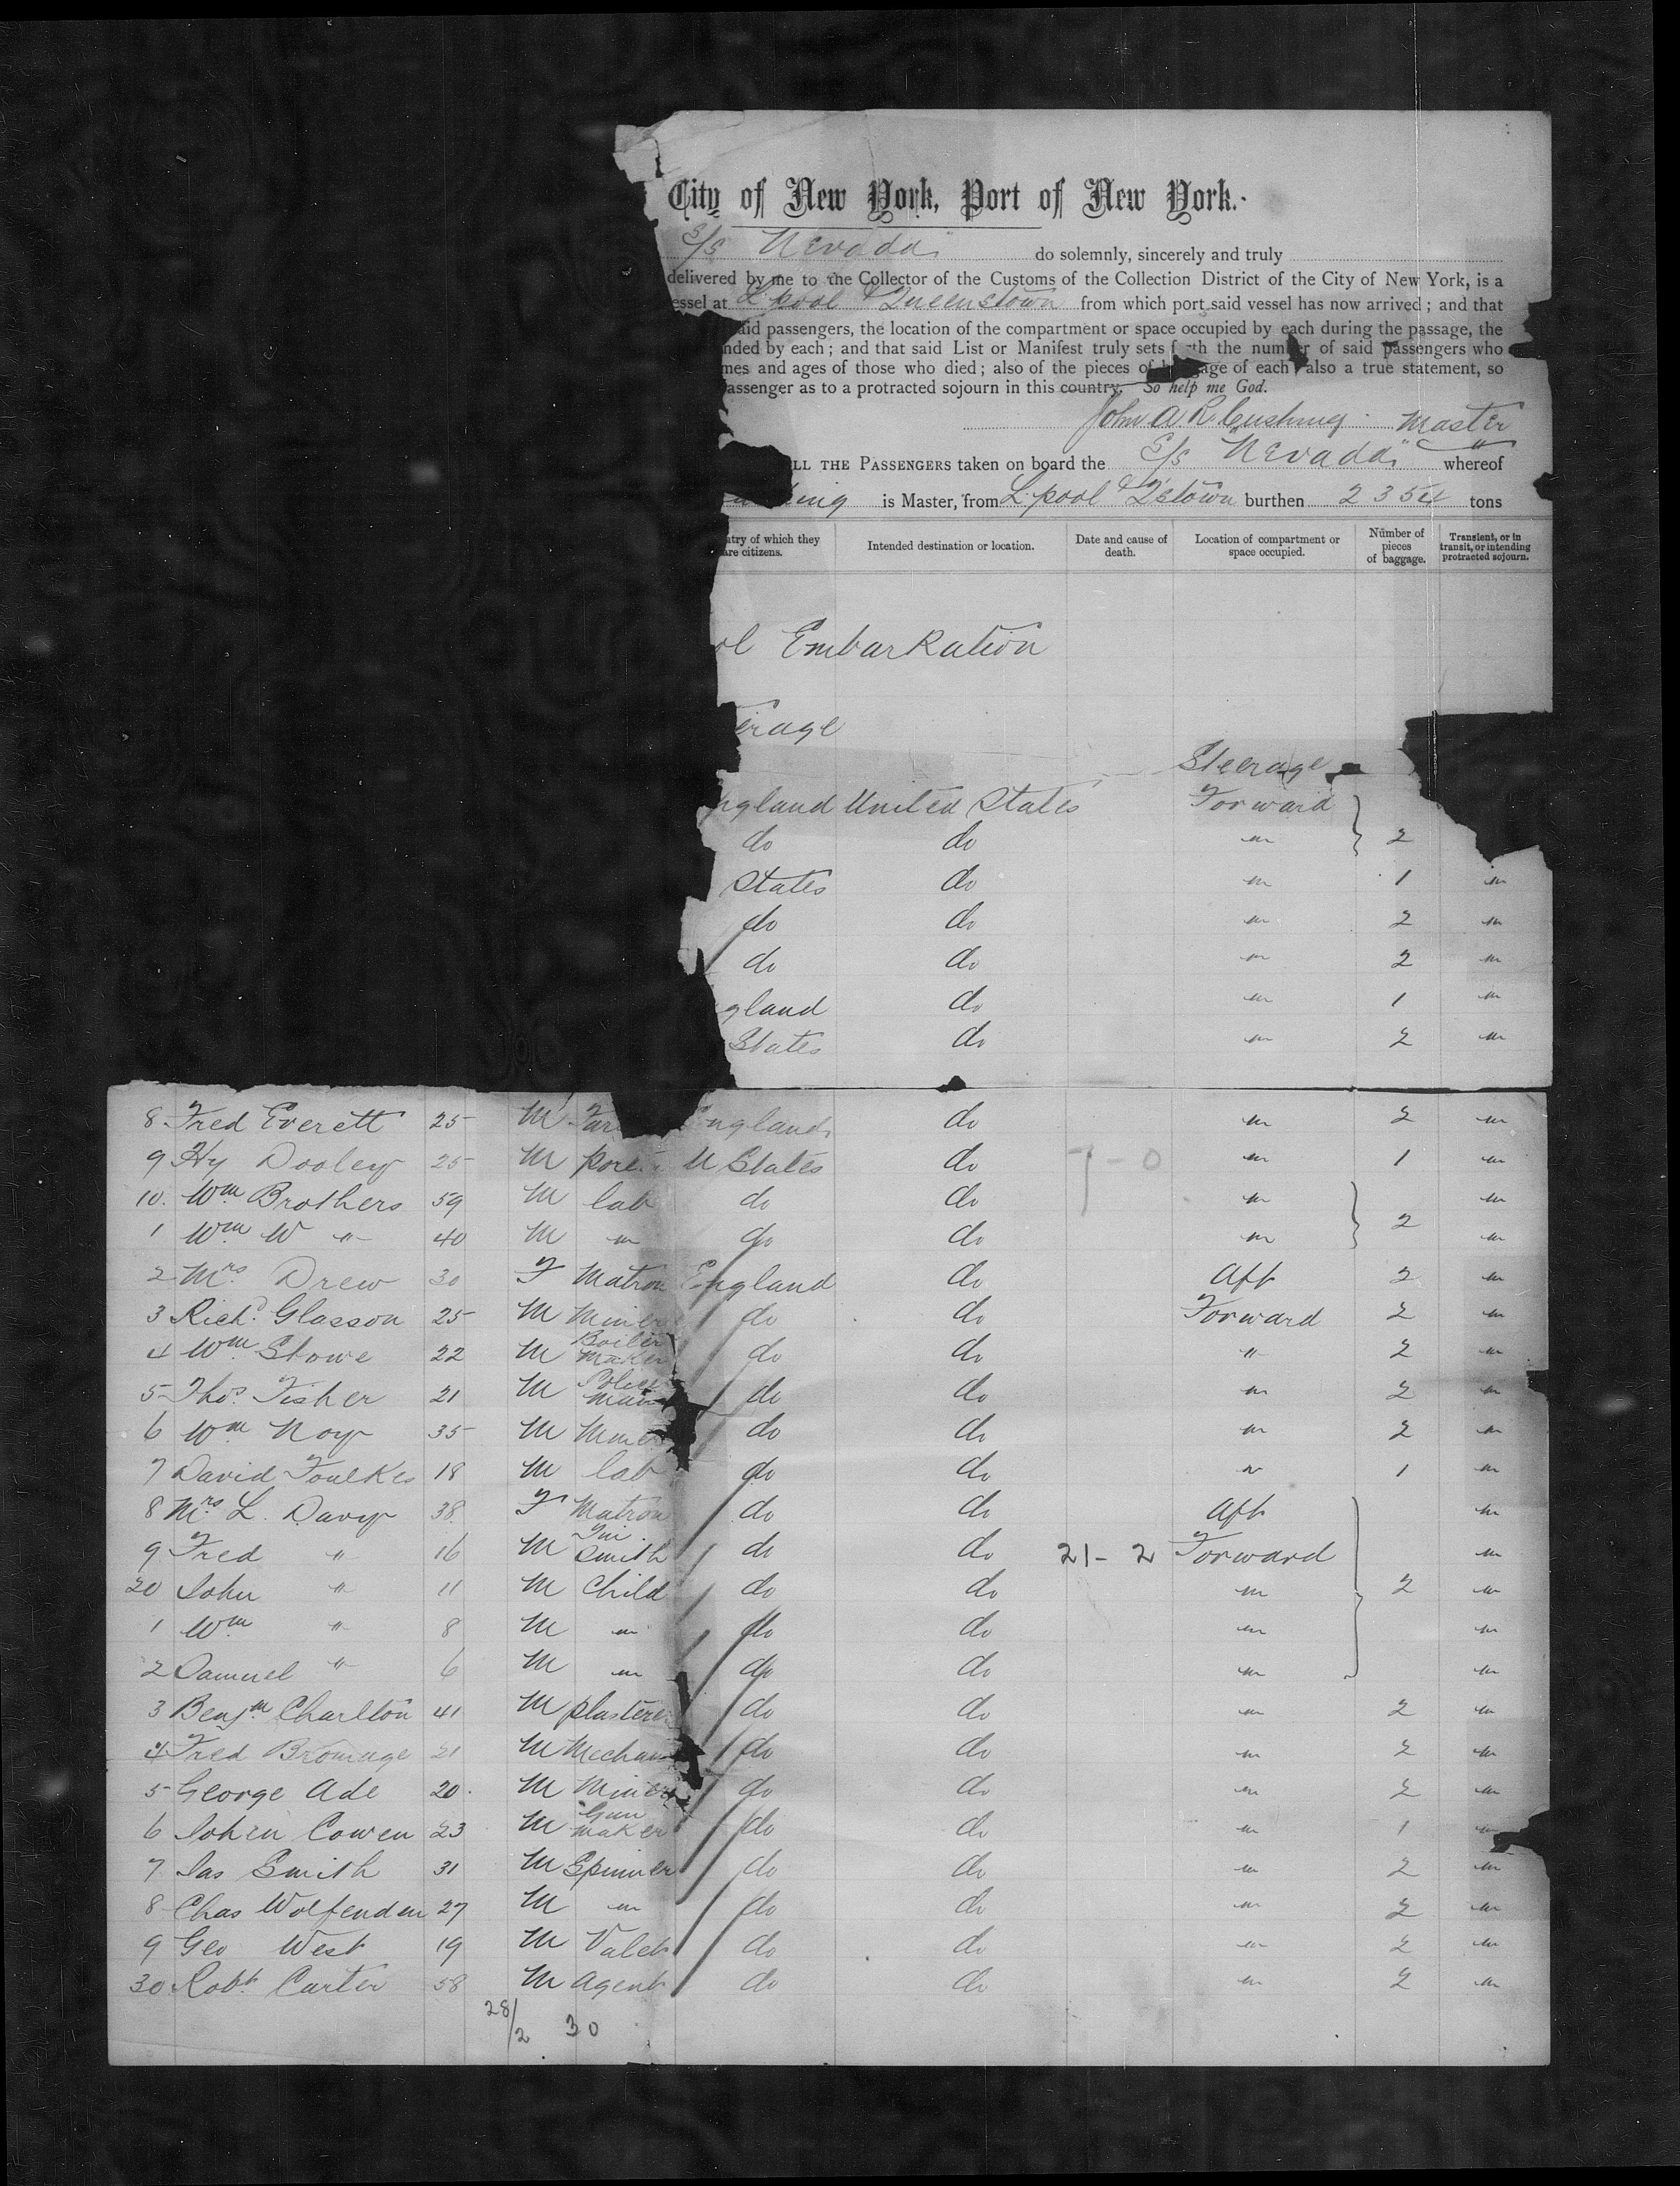 City of New York, Port of New York.
S/S Nevada do solemnly, sincerely and truly
delivered by me to the Collector of the Customs of the Collection District of the City of New York, is a
essel at L'pool & Queenstown from which port said vessel has now arrived; and that
aid passengers, the location of the compartment or space occupied by each during the passage, the
nded by each; and that said List or Manifest truly sets the number of said passengers who
mes and ages of those who died; also of the pieces of of each also a true statement, so
assenger as to a protracted sojourn in this country. So help me God.
John A R Cushing Master
LL THE PASSENGERS taken on board the S/S "Nevada" whereof
ing is Master, from L'pool & Q'stown burthen 2354 tons
ntry of which they are citizens. Intended destination or location. Date and cause of death. Location of compartment or space occupied. Number of pieces of baggage. Transient, or in transit, or intending protracted sojourn.
ol Embarkation
erage
Steerage
ngland United States Forward
do do " 2
States do " 1 "
do do " 2 "
do do " 2 "
gland do " 1 "
States do " 2 "
8 Fred Everett 25 M Far England do " 2 "
9 Hy Dooley 25 M porter U States do 7-0 " 1 "
10. Wm Brothers 59 M lab do do " "
1 Wm W " 40 M " do do " 2 "
2 Mrs Drew 30 F Matron England do Aft 2 "
3 Richd Glasson 25 M Miner do do Forward 2 "
4 Wm Stowe 22 M Boiler maker do do " 2 "
5 Thos Fisher 21 M Police man do do " 2 "
6 Wm Noy 35 M Miner do do " 2 "
7 David Foulkes 18 M lab do do " 1 "
8 Mrs L. Davy 38 F Matron do do Aft "
9 Fred " 16 M Tin smith do do 21-2 Forward "
20 John " 11 M Child do do " 2 "
1 Wm " 8 M " do do " "
2 Samuel " 6 M " do do " "
3 Benjm Charlton 41 M plasterer do do " 2 "
4 Fred Bromage 21 M Mechan do do " 2 "
5 George Ade 20 M Miner do do " 2 "
6 John Cowen 23 M Gun maker do do " 1 "
7 Jas Smith 31 M Spinner do do " 2 "
8 Chas Wolfenden 27 M " do do " 2 "
9 Geo West 19 M Valet do do " 2 "
30 Robt Carter 58 M Agent do do " 2 "
28/2 30